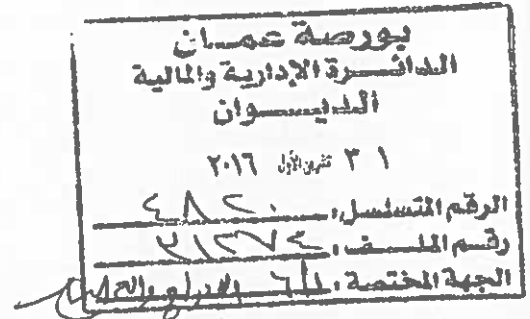 بورصة عمـــان
الدائـــرة الإدارية والمالية
الديـــوان
٣١ تشرين الأول ٢٠١٦
الرقم المتسلسل: ٤٨٢٠
رقم الملــف:
الجهة المختصة: